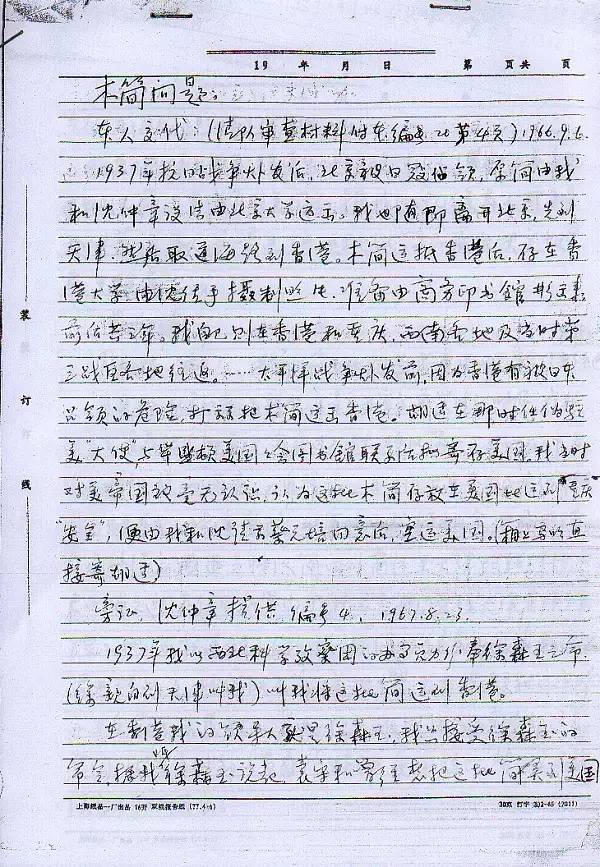 19 年 月 日 第 页共 页
木简问题：
本人交代：（清队审查材料 件东编号20第4页）1966.9.6.
1937年抗日战争爆发后，北京被日寇占领，原简由我
和沈仲章设法由北京大学运出。我也随即离开北京，先到
天津，然后取道海路到香港。木简运抵香港后，存在香
港大学，由沈经手摄制照片，准备由商务印书馆影印，
前后共三年。我自己则在香港和重庆，西南各地及当时第
三战区各地往返。……太平洋战争爆发前，因为香港有被日本
占领的危险，打算把木简运出香港。胡适在那时任伪驻
美“大使”，与华盛顿美国国会图书馆联系后拟寄存美国。我当时
对美帝国毫无认识，认为这批木简存放在美国比运到重庆
“安全”，便由我和沈请示蔡元培同意后，运送美国。（箱上写的直
接寄胡适）
旁证，沈仲章提供，编号4，1967.8.23.
1937年我以西北科学考察团的办事员身份奉徐森玉之命，
（徐亲自到天津叫我）叫我将这批简运到香港。
在香港我的领导人就是徐森玉，我只接受徐森玉的
命令，据我 徐森玉说起，袁 想把这批简弄到美国
装
订
线
上海纸品一厂出品 16开 双线报告纸 (77.4.6)